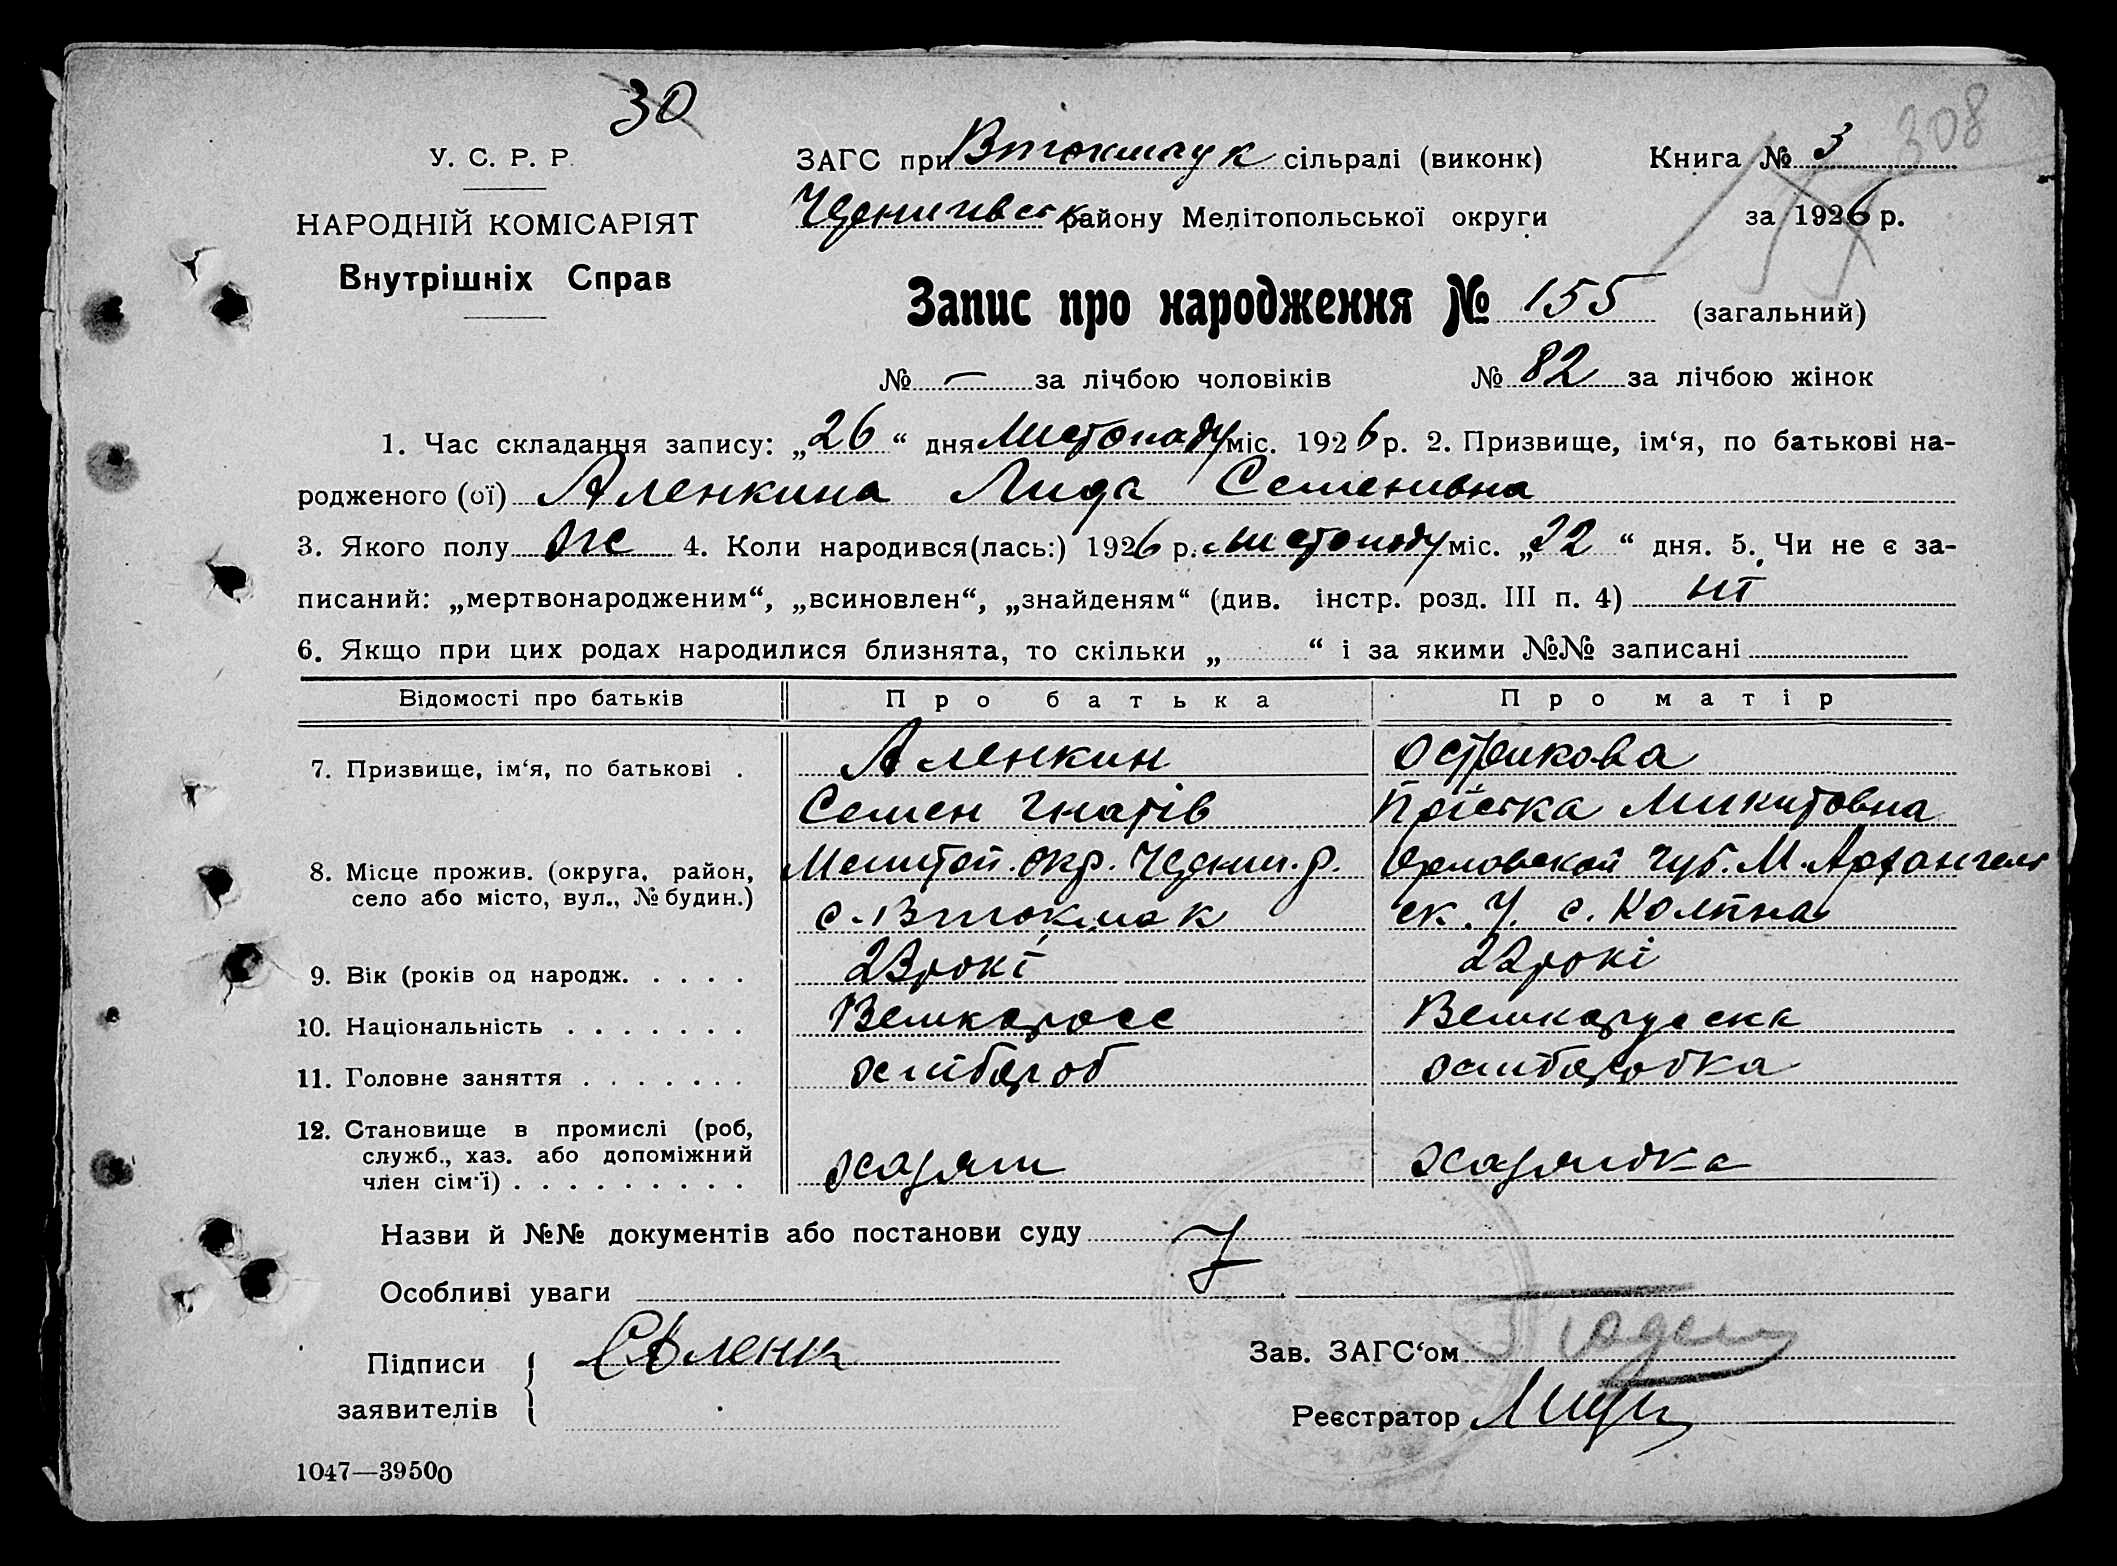 30
308
У. С. Р. Р.
НАРОДНІЙ КОМІСАРІЯТ
Внутрішніх Справ
ЗАГС при Втокмачук сільраді (виконк)
Книга № 3
району Мелітопольської округи
за 1926 р.
155
Запис про народження № 155 (загальний)
№ — за лічбою чоловіків № 82 за лічбою жінок
1. Час складання запису: „26“ дня Листопаду міс. 1926 р. 2. Призвище, ім‘я, по батькові на-
родженого (ої) Аленкина Лида Семенивна
3. Якого полу ж 4. Коли народився(лась:) 1926 р. листопаду міс. „22“ дня. 5. Чи не є за-
писаний: „мертвонародженим“, „всиновлен“, „знайденям“ (див. інстр. розд. III п. 4) ні
6. Якщо при цих родах народилися близнята, то скільки „ “ і за якими №№ записані
Відомості про батьків Про батька Про матір
7. Призвище, ім‘я, по батькові . Аленкин Острикова
Семен Гнатів Микитовна
8. Місце прожив. (округа, район, село або місто, вул., № будин.) Мелитоп. окр. Черниг. р. Орловской губ. М. Архангель
с. Втокмак ск. У. с. Колпна
9. Вік (років од народж. . . . . 23 рокі 22 рокі
10. Національність . . . . . . . Великоросс Великоруска
11. Головне заняття . . . . . . . хлібороб хліборобка
12. Становище в промислі (роб,
служб., хаз. або допоміжний
член сім‘ї) . . . . . . . . . хазяин хазяйка
Назви й №№ документів або постанови суду
Особливі уваги
Підписи
заявителів
САленк
Зав. ЗАГС‘ом
Реєстратор
1047—39500